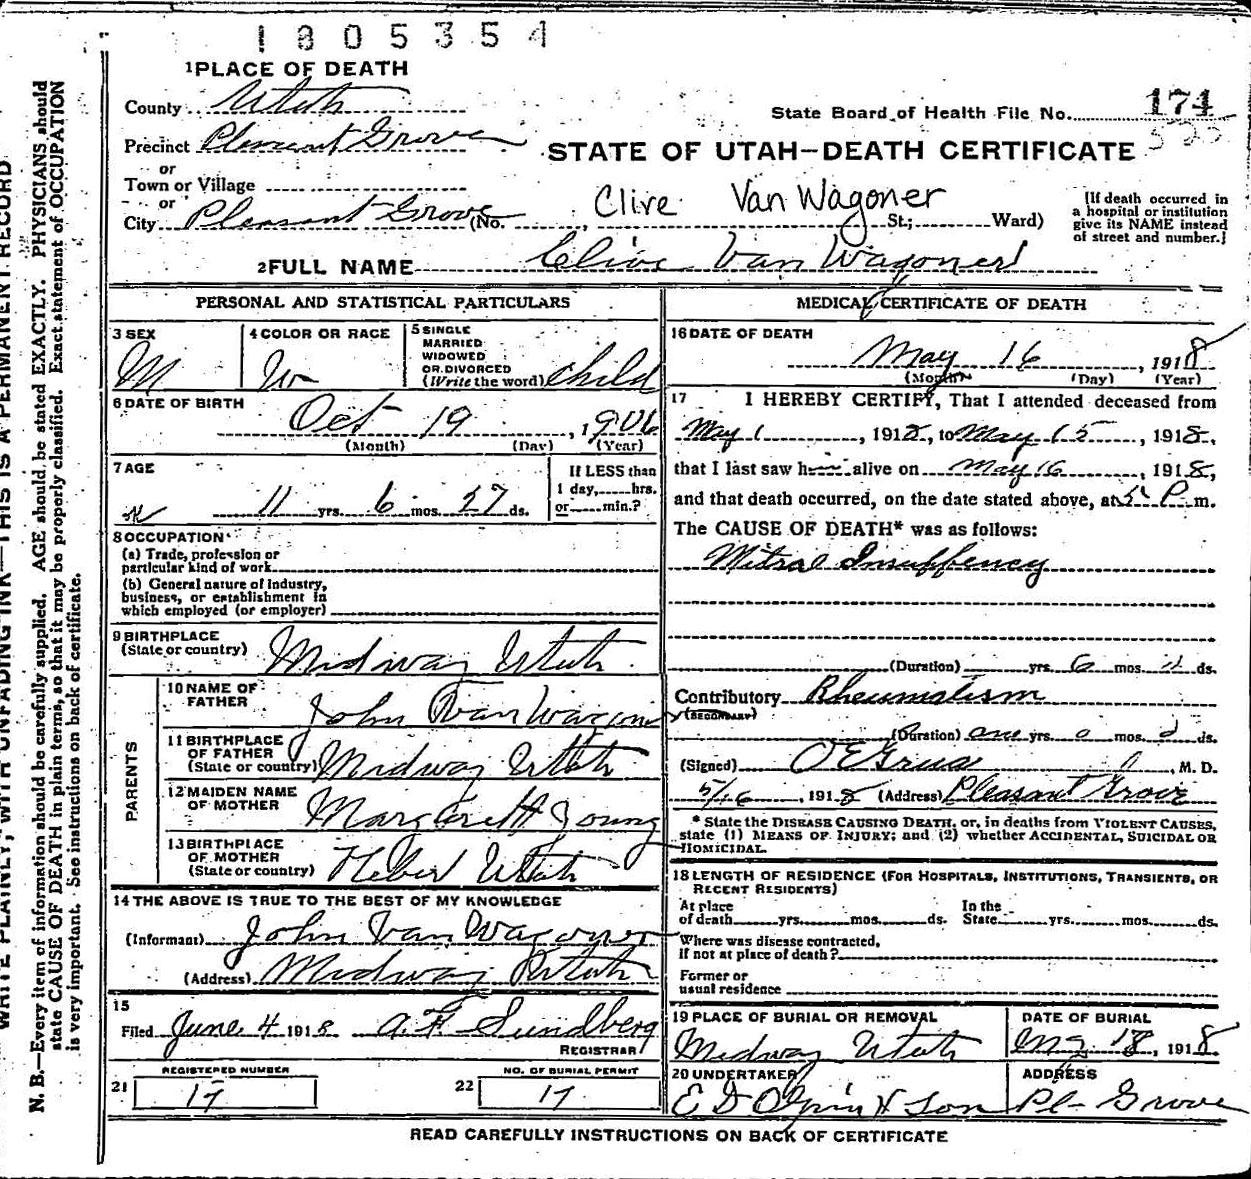 1805354
1 PLACE OF DEATH
County Utah
State Board of Health File No. 174
Precinct Pleasant Grove
STATE OF UTAH—DEATH CERTIFICATE
or
Town or Village
or
Clive Van Wagoner
City Pleasant Grove (No. St.; Ward)
[If death occurred in
a hospital or institution
give its NAME instead
of street and number.]
2 FULL NAME Clive Van Wagoner
PERSONAL AND STATISTICAL PARTICULARS
3 SEX
M
4 COLOR OR RACE
W
5 SINGLE
MARRIED
WIDOWED
OR DIVORCED
(Write the word) Child
6 DATE OF BIRTH
Oct 19, 1906
(Month) (Day) (Year)
7 AGE
11 yrs. 6 mos. 27 ds.
If LESS than
1 day, hrs.
or min.?
8 OCCUPATION
(a) Trade, profession or
particular kind of work
(b) General nature of industry,
business, or establishment in
which employed (or employer)
9 BIRTHPLACE
(State or country) Midway Utah
PARENTS
10 NAME OF
FATHER John Van Wagoner
11 BIRTHPLACE
OF FATHER
(State or country) Midway Utah
12 MAIDEN NAME
OF MOTHER Margarett Young
13 BIRTHPLACE
OF MOTHER
(State or country) Heber Utah
14 THE ABOVE IS TRUE TO THE BEST OF MY KNOWLEDGE
(Informant) John Van Wagoner
(Address) Midway Utah
15
Filed June 4 1918 A. F. Sundberg
REGISTRAR
REGISTERED NUMBER
21 17
NO. OF BURIAL PERMIT
22 17
MEDICAL CERTIFICATE OF DEATH
16 DATE OF DEATH
May 16, 1918
(Month) (Day) (Year)
17 I HEREBY CERTIFY, That I attended deceased from
May 1, 1918, to May 15, 1918,
that I last saw h alive on May 16, 1918,
and that death occurred, on the date stated above, at 5 P. m.
The CAUSE OF DEATH* was as follows:
Mitral Insuffency
(Duration) yrs. 6 mos. ds.
Contributory Rheumatism
(SECONDARY)
(Duration) one yrs. o mos. ds.
(Signed) O E Grua, M. D.
5/16, 1918 (Address) Pleasant Grove
* State the DISEASE CAUSING DEATH, or, in deaths from VIOLENT CAUSES,
state (1) MEANS OF INJURY; and (2) whether ACCIDENTAL, SUICIDAL OR
HOMICIDAL.
18 LENGTH OF RESIDENCE (FOR HOSPITALS, INSTITUTIONS, TRANSIENTS, OR
RECENT RESIDENTS)
At place
of death yrs. mos. ds.
In the
State yrs. mos. ds.
Where was disease contracted,
if not at place of death?
Former or
usual residence
19 PLACE OF BURIAL OR REMOVAL
Midway Utah
DATE OF BURIAL
18, 1918
20 UNDERTAKER
E D Olpin & Son
ADDRESS
Pl- Grove
READ CAREFULLY INSTRUCTIONS ON BACK OF CERTIFICATE
WRITE PLAINLY, WITH UNFADING INK—THIS IS A PERMANENT RECORD
N. B.—Every item of information should be carefully supplied. AGE should be stated EXACTLY. PHYSICIANS should
state CAUSE OF DEATH in plain terms, so that it may be properly classified. Exact statement of OCCUPATION
is very important. See instructions on back of certificate.